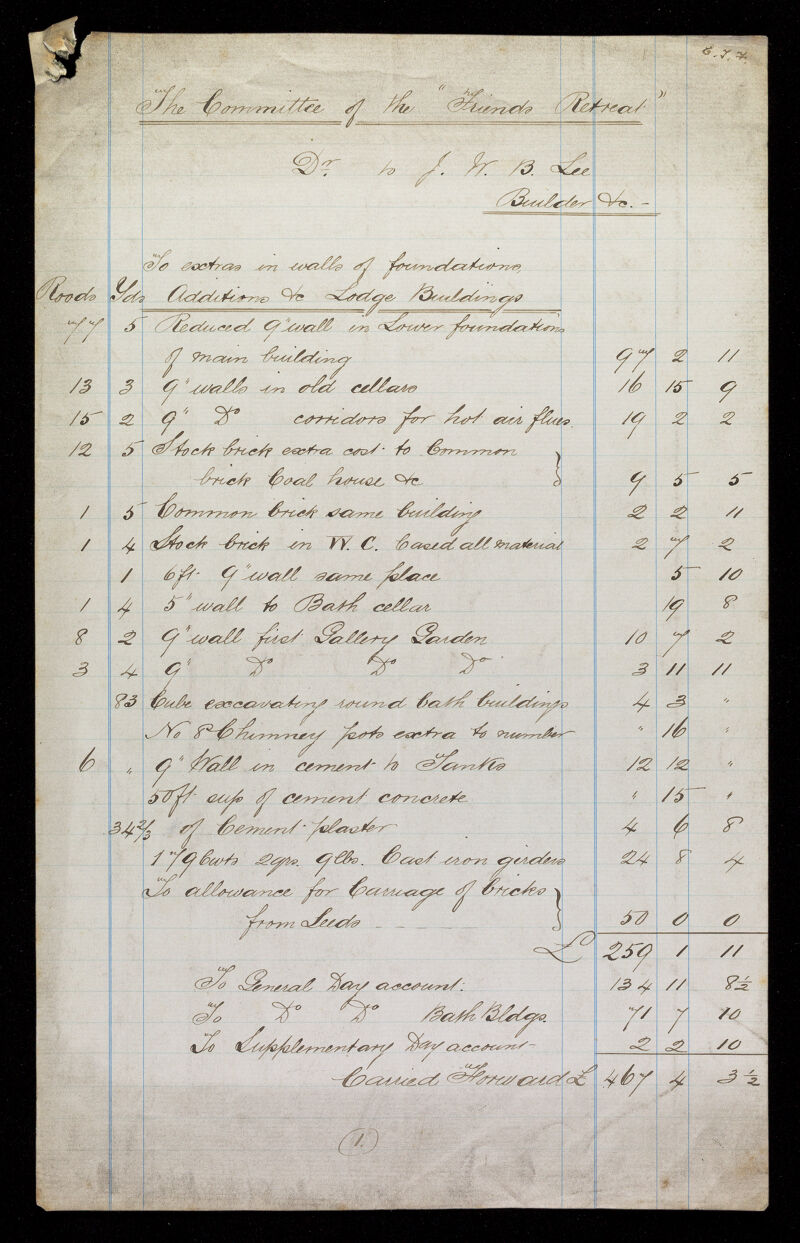 The Committee of the "Friends Retreat"
Dr. to J. W. B. Lee
Builder &c.-
To extras in walls of foundations,
Roods Yds Additions &c Lodge Buildings
77 5 Reduced 9" wall in Lower foundations
of main building 97 2 11
13 3 9" walls in old cellars 16 15 9
15 2 9" Do corridors for hot air flues. 19 2 2
12 5 Stock brick extra cost to Common
brick Coal house &c } 9 5 5
1 5 Common brick same building 2 2 11
1 4 Stock brick in W. C. Cased all material 2 7 2
1 6ft 9" wall same place 5 10
1 4 5" wall to Bath cellar 19 8
8 2 9" wall first Gallery Garden 10 7 2
3 4 9" Do Do Do 3 11 11
83 Cube excavating round bath buildings 4 3 "
No 8 Chimney pots extra to number " 16 "
6 " 9" Wall in cement to Tanks 12 12 "
50ft sup of cement concrete " 15 "
34 2/3 of Cement plaster 4 6 8
179 Cwts 2qrs. 9lbs. Cast iron girders 24 8 4
To allowance for Carriage of bricks
from Leeds - - - - } 50 0 0
£ 259 1 11
To General Day account. 134 11 8½
To Do Do Bath Bldgs. 71 7 10
To Supplementary Day account- 2 2 10
Carried Forward £ 467 4 3½
(1.)